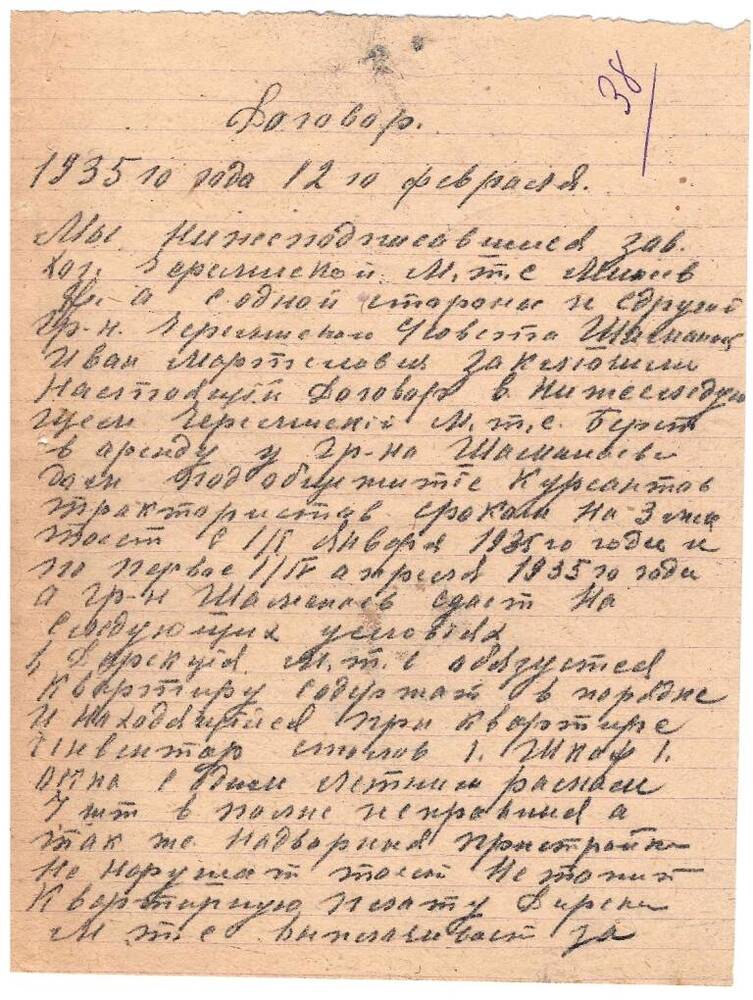 38
Договор.
1935 го года 12 го февраля.
Мы нижеподписавшиеся зав.
хоз. М.т.с Минеев
с одной стороны и сдругой
Гр-н. Совета Шаманаев
Иван заключили
Настоящий Договор в нижеследую
щем М.т.с. Берет
в аренду у Гр-на Шаманаева
дом под общежитіе Курсантов
трактористов сроком на 3 меся
тоест с 1/I Января 1935 го года и
по первое 1/IV апреля 1935 го года
а гр-н Шаманаев сдает на
следующих условіях
1, М.т.с обязуется
Квартиру содержат в порядке
и находящийся при квартире
Инвентар столов 1. Шкаф 1.
окна с одним летним рамам
7 шт в полне исправныя а
так же надворныя пристройки
не нарушат тоест не топит
Квартирную плату Дирек
М т с выплачивает за